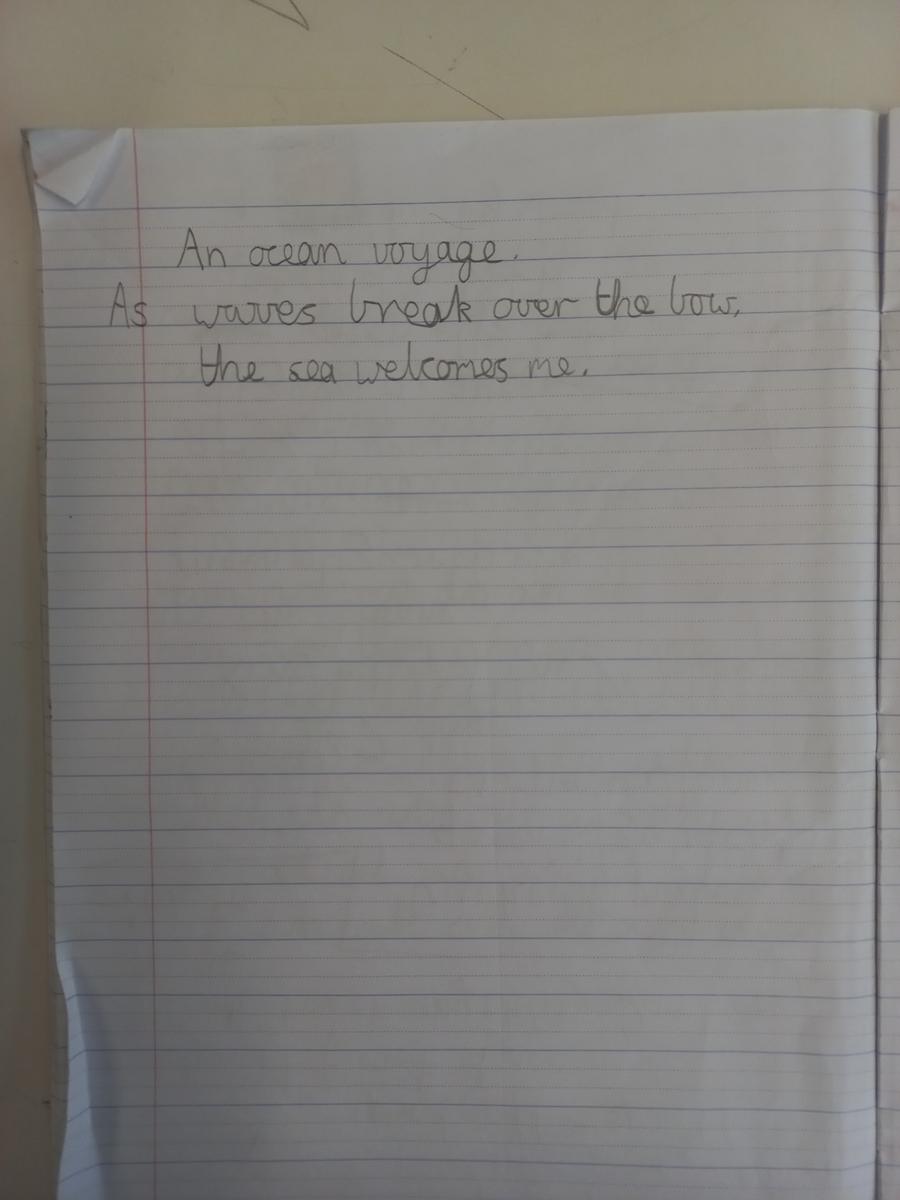 An ocean voyage.
As waves break over the bow,
the sea welcomes me.